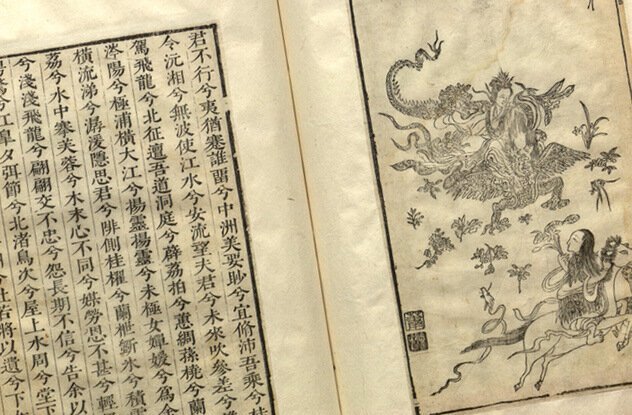 君不行兮夷猶蹇誰留兮中洲美要眇兮宜修沛吾乘兮桂
令沅湘兮無波使江水兮安流望夫君兮未來吹參差兮
駕飛龍兮北征邅吾道兮洞庭薜荔拍兮蕙綢蓀橈兮蘭
涔陽兮極浦橫大江兮揚靈揚靈兮未極女嬋媛兮為余
橫流涕兮潺湲隱思君兮陫側桂櫂兮蘭枻斲冰兮積
荔兮水中搴芙蓉兮木末心不同兮媒勞恩不甚兮輕
兮淺淺飛龍兮翩翩交不忠兮怨長期不信兮告余以
兮江皋夕弭節兮北渚鳥次兮屋上水周兮堂下
杜若將以遺兮下